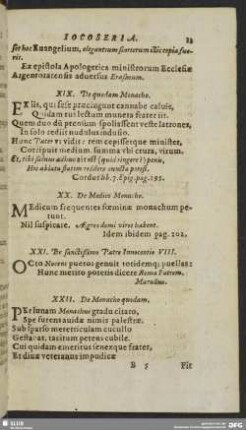 IOCOSERIA.
ser hoc Euangelium, elegantum scortorum illic copia fue-
rit.
Ex epistola Apologetica ministrorum Ecclesiæ
Argentoratensis aduersus Erasmum.
XIX. De quodam Monacho.
EXilis, qui sese præcingunt cannabe caluis,
Quidam rus lectum munera frater iit.
Quem duo dū prensum spoliassent veste latrones,
In solo rediit nudulus indusio.
Hunc Pater vt vidit: rem cepisse querne minister,
Corripuit medium summa vbi crura, virum.
Et, tibi saluus adhuc
Hoc ablata statim reddere cuncta potest.
Cordus lib. 7. Epig. pag. 195.
XX. De Medico Monacho.
MEdicum frequentes fæminæ monachum pe-
tunt.
Nil suspicare. Ægros domi viros habent.
Idem ibidem pag. 202.
XXI. De sanctissimo Patre Innocentio VIII.
OCto Nocens pueros genuit totidemq; puellas:
Hunc merito poteris dicere Roma Patrem.
Marullus.
XXII. De Monacho quodam.
PEr lunam Monachus gradu citato,
Spe furens auidæ nimis palestræ,
Sub sparso meretriculam cucullo
Gestarat, tacitum petens cubile.
Cui quidam emeritus senexque frater,
Et diuæ veteranus impudicæ
B 5
Fit
SLUB
DFG